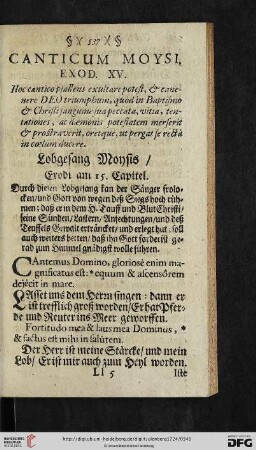 § X 537 X §
CANTICUM MOYSI,
EXOD. XV.
Hoc cantico psallens exultare potest, & cane-
nere DEO triumphum, quod in Baptismo
& Christi sanguine sua peccata, vitia, ten-
tationes, ac dæmonis potestatem merserit
& prostraverit, oretque, ut pergat se rectà
in cœlum ducere.
Lobgesang Moysis /
Exodi am 15. Capitel.
Durch disen Lobgesang kan der Sänger frolo-
cken/und Gott von wegen deß Sigs hoch rüh-
men: daß er in dem H. Tauff und Blut Christi/
seine Sünden/ Lastern/ Anfechtungen/ und deß
Teuffels Gewalt ertränckt/ und erlegt hat: soll
auch weiters betten/ daß ihn Gott forderist ge-
rad zum Himmel gnädigst wolle führen.
CAntemus Domino, gloriosè enim ma-
gnificatus est: * equum & ascensórem
dejécit in mare.
LAsset uns dem Herrn singen: dann er
ist trefflich groß worden/ Er hat Pfer-
de und Reuter ins Meer geworffen.
Fortitudo mea & laus mea Dominus, *
& factus est mihi in salútem.
Der Herr ist meine Stärcke/ und mein
Lob/ Er ist mir auch zum Heyl worden.
Ll 5 Iste